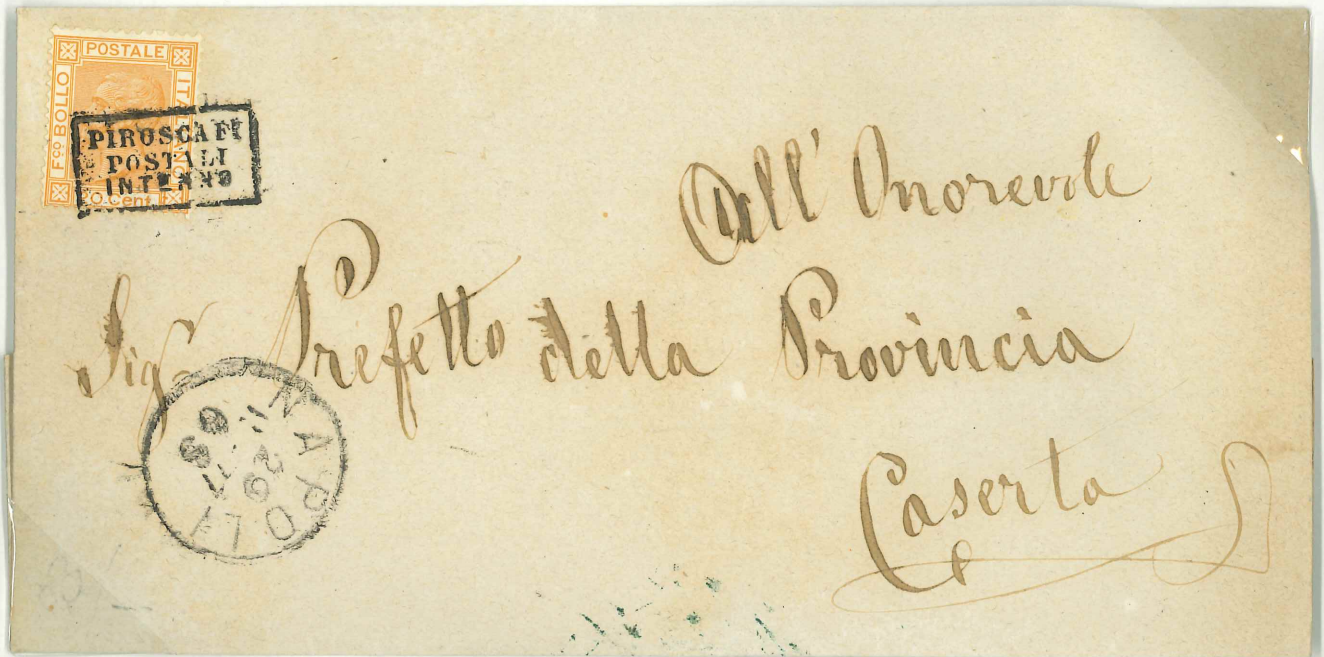 POSTALE
Fco BOLLO
ITALIANO
20 Cent
PIROSCAFI
POSTALI
INTERNO
All' Onorevole
Sigr Prefetto della Provincia
Caserta
NAPOLI